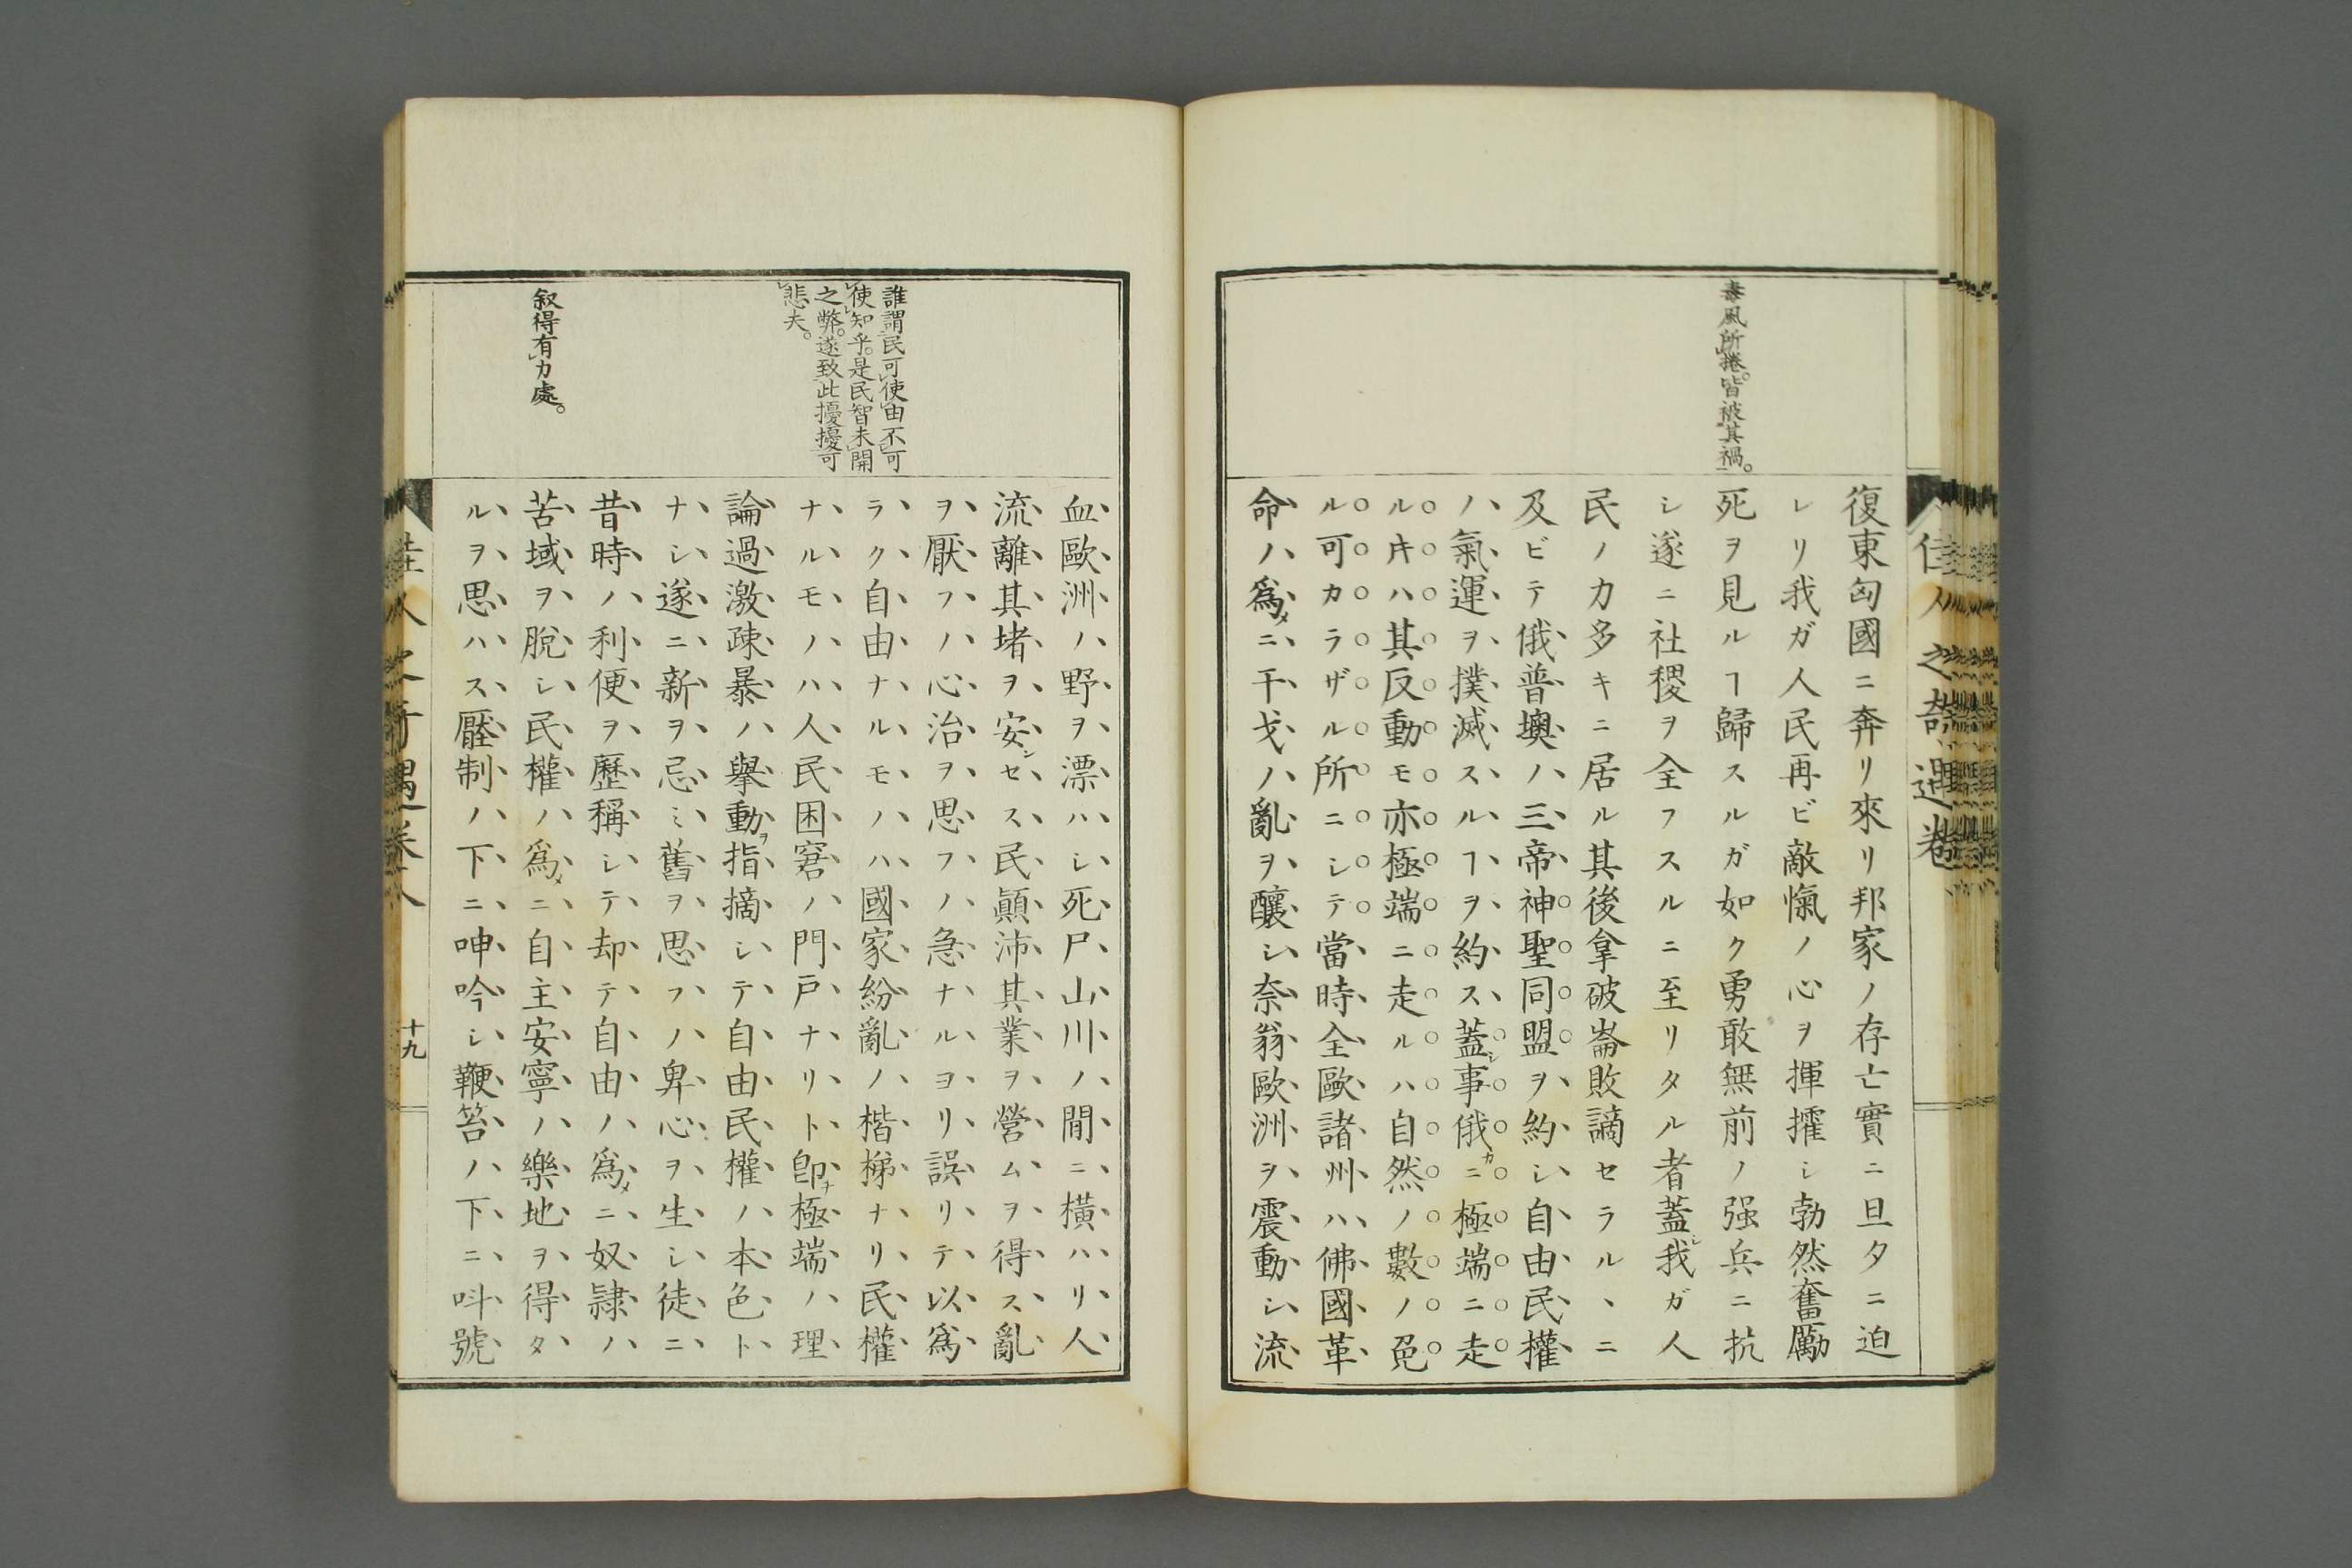 佳人之奇遇卷
毒風所捲。皆被其禍。
復東匈國ニ奔リ來リ邦家ノ存亡實ニ旦夕ニ迫
レリ我ガ人民再ビ敵愾ノ心ヲ揮攉シ勃然奮勵
死ヲ見ルヿ歸スルガ如ク勇敢無前ノ强兵ニ抗
シ遂ニ社稷ヲ全フスルニ至リタル者蓋シ我ガ人
民ノ力多キニ居ル其後拿破崙敗謫セラルヽニ
及ビテ俄普墺ノ三帝神聖同盟ヲ約シ自由民權
ノ氣運ヲ撲滅スルヿヲ約ス蓋シ事俄カニ極端ニ走
ルキハ其反動モ亦極端ニ走ルハ自然ノ數ノ免
ル可カラザル所ニシテ當時全歐諸州ハ佛國革
命ノ爲メニ干戈ノ亂ヲ釀シ奈翁歐洲ヲ震動シ流
誰謂民可使由不可
使知乎。是民智未開
之弊。遂致此擾擾可
悲夫。
叙得有力處。
血歐洲ノ野ヲ漂ハシ死尸山川ノ間ニ橫ハリ人
流離其堵ヲ安ンセス民顚沛其業ヲ營ムヲ得ス亂
ヲ厭フノ心治ヲ思フノ急ナルヨリ誤リテ以爲
ラク自由ナルモノハ國家紛亂ノ楷梯ナリ民權
ナルモノハ人民困窘ノ門戸ナリト卽チ極端ノ理
論過激疎暴ノ擧動ヲ指摘シテ自由民權ノ本色ト
ナシ遂ニ新ヲ忌ミ舊ヲ思フノ卑心ヲ生シ徒ニ
昔時ノ利便ヲ歷稱シテ却テ自由ノ爲メニ奴隷ノ
苦域ヲ脫シ民權ノ爲メニ自主安寧ノ樂地ヲ得タ
ルヲ思ハス壓制ノ下ニ呻吟シ鞭笞ノ下ニ呌號
佳人之奇遇卷八
十九